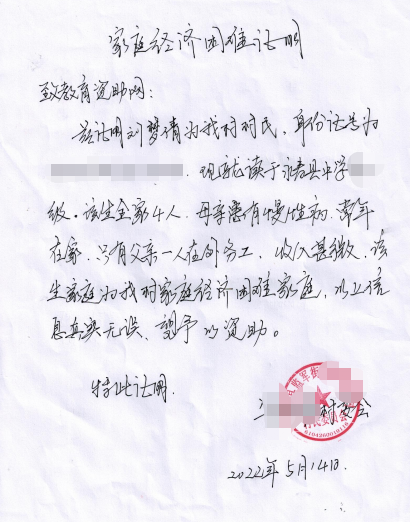 家庭经济困难证明
致教育资助网：
兹证明刘梦倩为我村村民，身份证号为
现就读于永春县中学
级。该生全家4人，母亲患有慢性病，常年
在家，只有父亲一人在外务工，收入甚微，该
生家庭为我村家庭经济困难家庭，以上信
息真实无误，望予以资助。
特此证明。
村委会
2022年5月14日